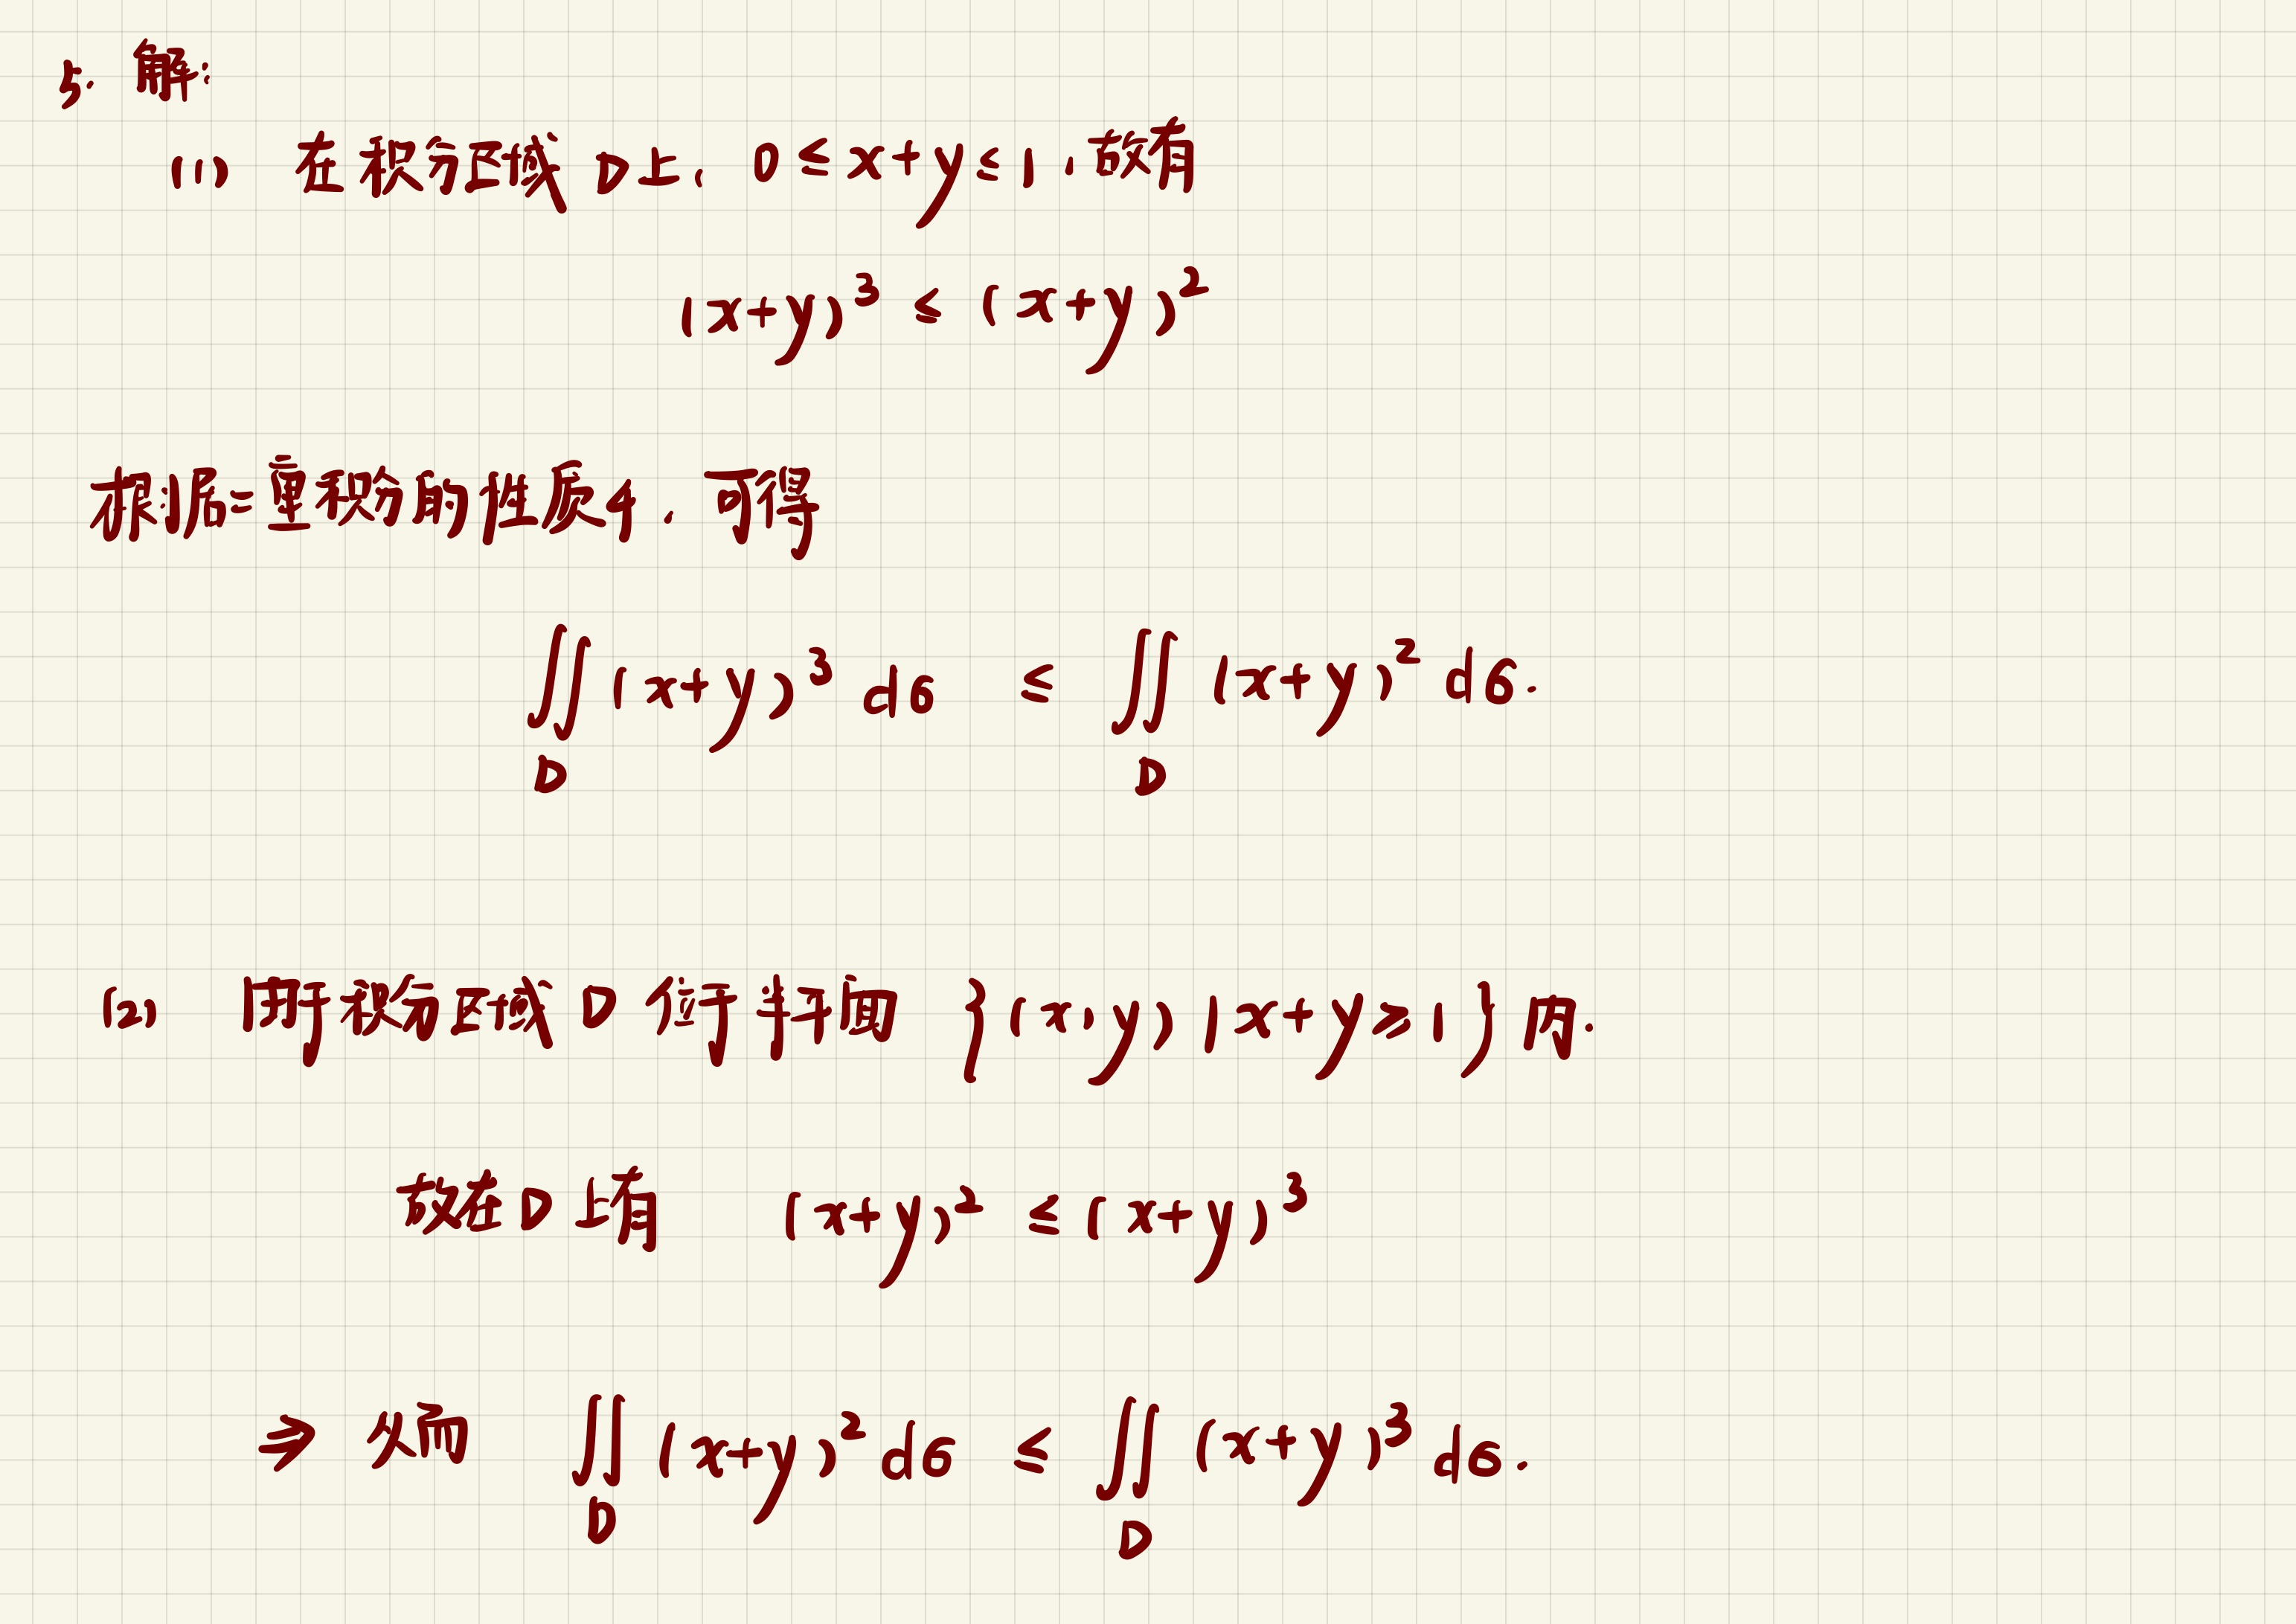 5. 解:
(1) 在积分区域 D上, 0≤x+y≤1,故有
(x+y)³ ≤ (x+y)²
根据二重积分的性质4,可得
∬(x+y)³ dσ ≤ ∬(x+y)² dσ.
D D
(2) 由于积分区域 D 位于半平面 {(x,y)|x+y≥1}内.
故在D上有 (x+y)² ≤(x+y)³
⇒ 从而 ∬(x+y)² dσ ≤ ∬(x+y)³ dσ.
D D